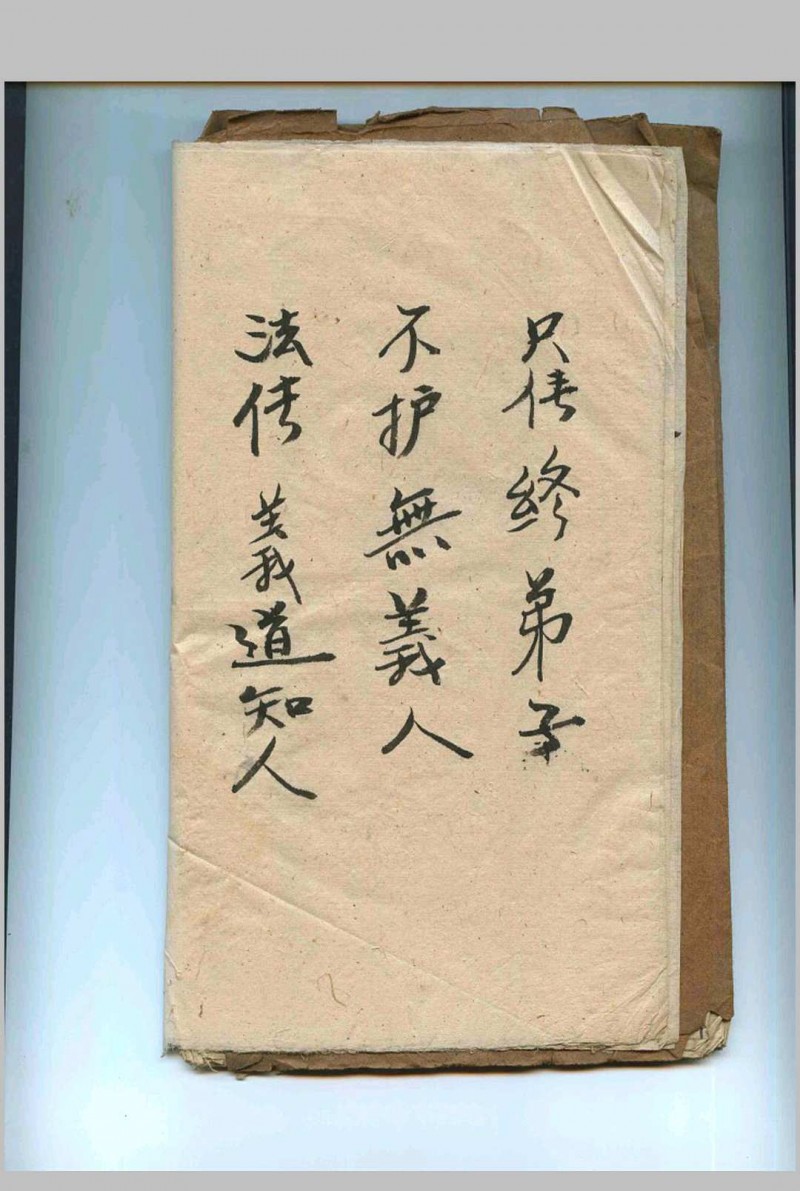 只传終弟子
不护無義人
法传義道知人